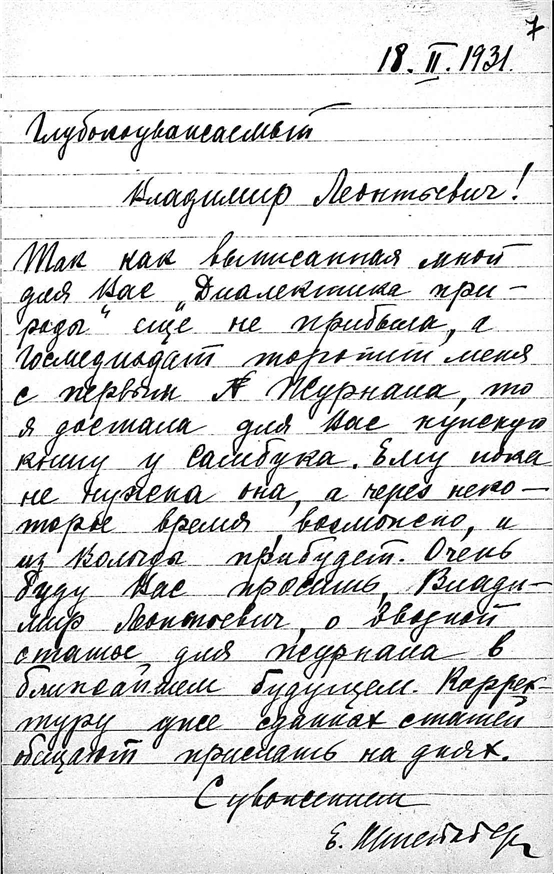 7
18.II.1931.
Глубокоуважаемый
Владимир Леонтьевич!
Так как выписанная мной
для Вас „Диалектика при-
роды" ещё не прибыла, а
Госмедиздат торопит меня
с первым № журнала, то
я достала для Вас нужную
книгу у Самбука. Ему пока
не нужна она, а через неко-
торое время, возможно, и
из Вологды прибудет. Очень
буду Вас просить, Влади-
мир Леонтьевич, о
статье для журнала в
ближайшем будущем. Коррек-
туру уже сданных статей
обещают прислать на днях.
С уважением
Е.